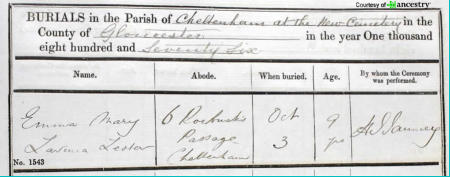 Courtesy of ancestry
BURIALS in the Parish of Cheltenham at the New Cemetery in the
County of Gloucester in the year One thousand
eight hundred and Seventy Six
Name. Abode. When buried. Age. By whom the Ceremony was performed.
Emma Mary 6 Roebuck's Oct 9
Lavinia Lester Passage 3 yrs
Cheltenham
No. 1543